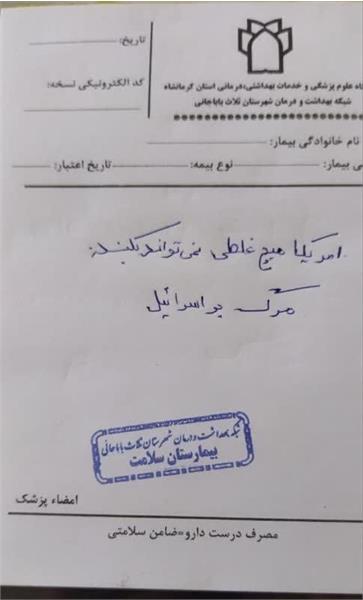 تاریخ:
کد الکترونیکی نسخه:
علوم پزشکی و خدمات بهداشتی،درمانی استان کرمانشاه
شبکه بهداشت و درمان شهرستان ثلاث باباجانی
نام خانوادگی بیمار:
بیمار:
نوع بیمه:
تاریخ اعتبار:
امریکا هیچ غلطی نمی تواند بکند.
مرگ بر اسرائیل
شبکه بهداشت و درمان شهرستان ثلاث باباجانی
بیمارستان سلامت
امضاء پزشک
مصرف درست دارو=ضامن سلامتی